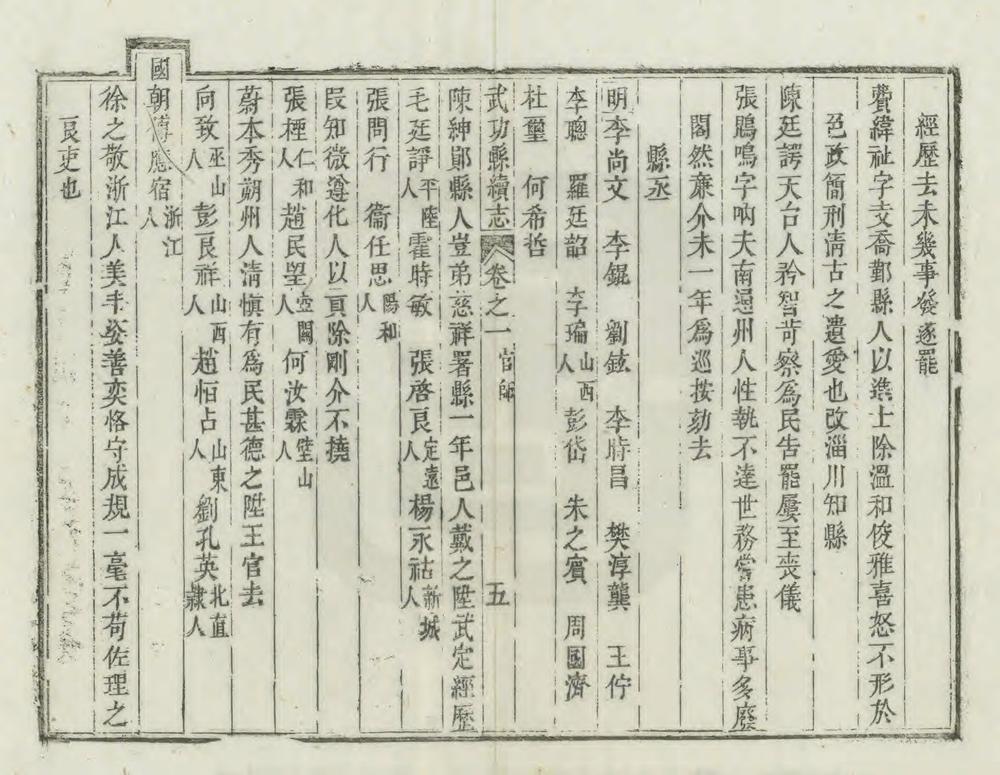 經歷去未幾事發逐罷
費緯祉字支喬鄞縣人以進士除溫和俊雅喜怒不形於
邑政簡刑淸古之遺愛也改淄川知縣
陳廷諤天台人矜智苛察爲民吿罷屢至喪儀
張鵾鳴字吶夫南通州人性執不達世務嘗患病事多廢
閣然亷介未一年爲巡按劾去
縣丞
明李尚文 李錕 劉鉉 李時昌 樊淳龔 王佇
李聰 羅廷韶 李瑞山西人 彭岱 朱之賓 周國濟
杜璽 何希哲
武功縣續志 卷之一 官師 五
陳紳鄖縣人豈弟慈祥署縣一年邑人戴之陞武定經歷
毛廷諍平陸人 霍時敏 張啓良定遠人 楊永祜新城人
張問行 衞任思陽和人
段知微遵化人以貢除剛介不撓
張桱仁和人 趙民望壺關人 何汝霖壁山人
蔚本秀朔州人淸愼有爲民甚德之陞王官去
向致巫山人 彭良祥山西人 趙恒占山東人 劉孔英北直隸人
國朝傅應宿浙江人
徐之敬浙江人美丰姿善奕恪守成規一毫不苟佐理之
良吏也